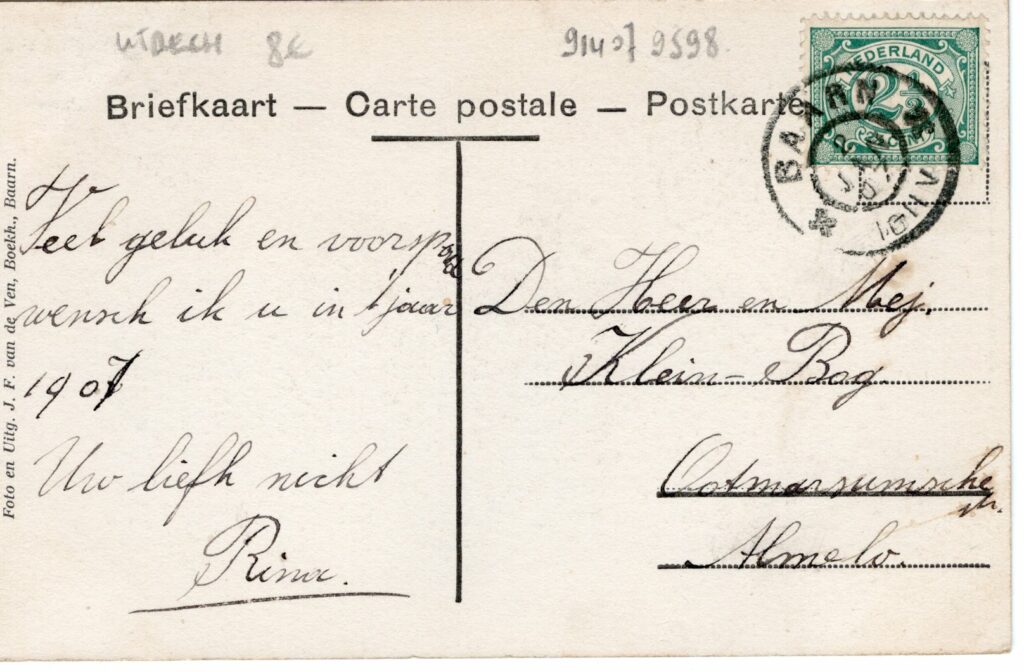 UTRECH 8€ 91407 9598
Briefkaart — Carte postale — Postkarte
NEDERLAND
2½
CENT
BAARN
2 JAN 07
Foto en Uitg. J. F. van de Ven, Boekh., Baarn.
Veel geluk en voorspoed
wensch ik u in 't jaar
1907
Uw liefh nicht
Rina.
Den Heer en Mej.
Klein-Bog
Ootmarsumsche
str.
Almelo.